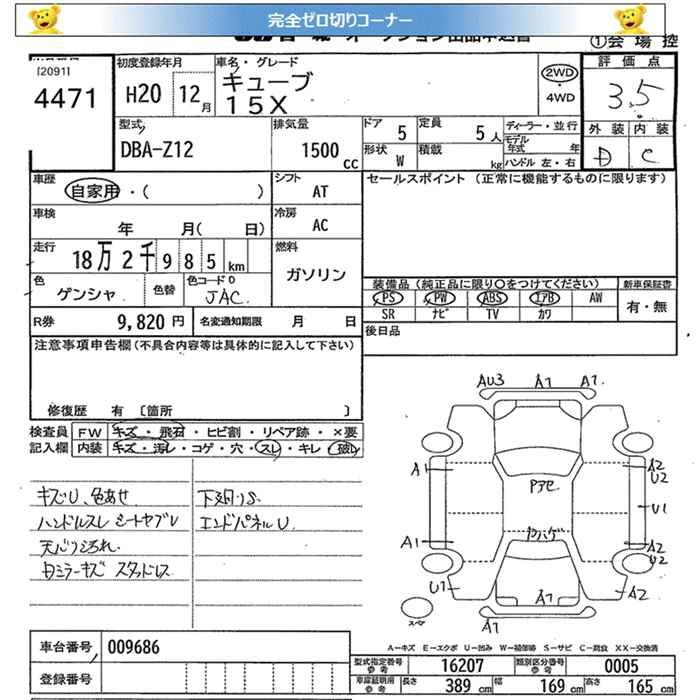 完全ゼロ切りコーナー
①会 場 控
[2091]
4471
初度登録年月
H20 12月
車名・グレード
キューブ
15X
2WD
4WD
評 価 点
3.5
外 装 内 装
D C
型式
DBA-Z12
排気量
1500 cc
ドア 5
定員 5人
形状 W
積載 kg
ディーラー・並行
モデル年式 年
ハンドル 左・右
車歴 自家用・( )
シフト AT
セールスポイント (正常に機能するものに限ります)
車検 年 月( 日)
冷房 AC
走行 18万2千985km
燃料 ガソリン
色 ゲンシャ
色替
色コードO JAC
装備品 (純正品に限り〇をつけてください)
新車保証書
PS PW ABS エアB AW
有・無
SR ナビ TV カワ
R券 9,820円
名変通知期限 月 日
後日品
注意事項申告欄 (不具合内容等は具体的に記入して下さい)
修復歴 有 [箇所 ]
検査員 FW キズ・飛石・ヒビ割・リペア跡・×要
記入欄 内装 キズ・汚レ・コゲ・穴・スレ・キレ・破レ
キズU、色あせ
ハンドルスレ シートヤブレ
天バリ汚れ
スタッドレス
下廻りS
エンドパネルU
AU3 A1 A1
A1 A2
U2
U1
A1 A2
U2
U1 A1 A2
A1
スペア
A-キズ E-エクボ U-凹み W-補修跡 S-サビ C-腐食 XX-交換済
車台番号 009686
登録番号
型式指定番号 参考 16207
類別区分番号 参考 0005
車庫証明用 参考 長さ 389cm 幅 169cm 高さ 165cm